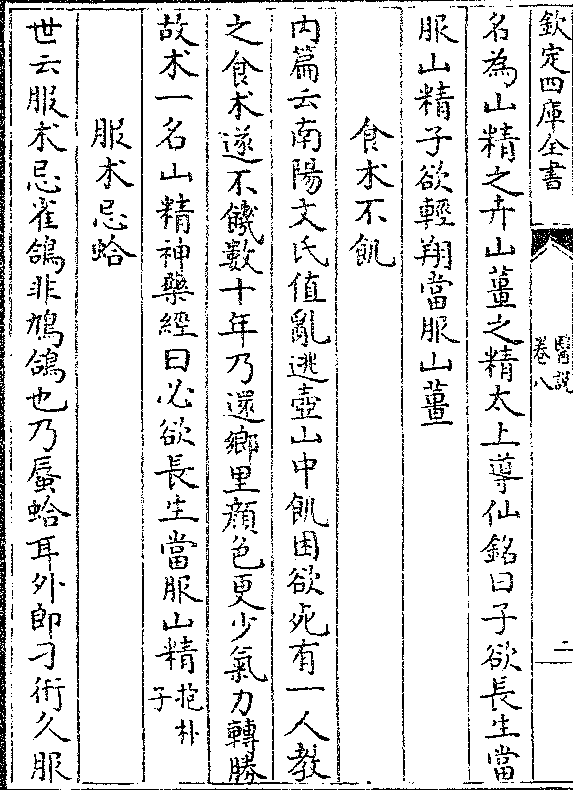 欽定四庫全書
醫説
卷八
二
名為山精之卉山薑之精太上導仙銘曰子欲長生當
服山精子欲輕翔當服山薑
食朮不飢
内篇云南陽文氏值亂逃壺山中飢困欲死有一人教
之食朮遂不饑數十年乃還鄉里顔色更少氣力轉勝
故朮一名山精神藥經曰必欲長生當服山精抱朴子
服朮忌蛤
世云服朮忌雀鴿非鳩鴿也乃蜃蛤耳外郎刁術久服